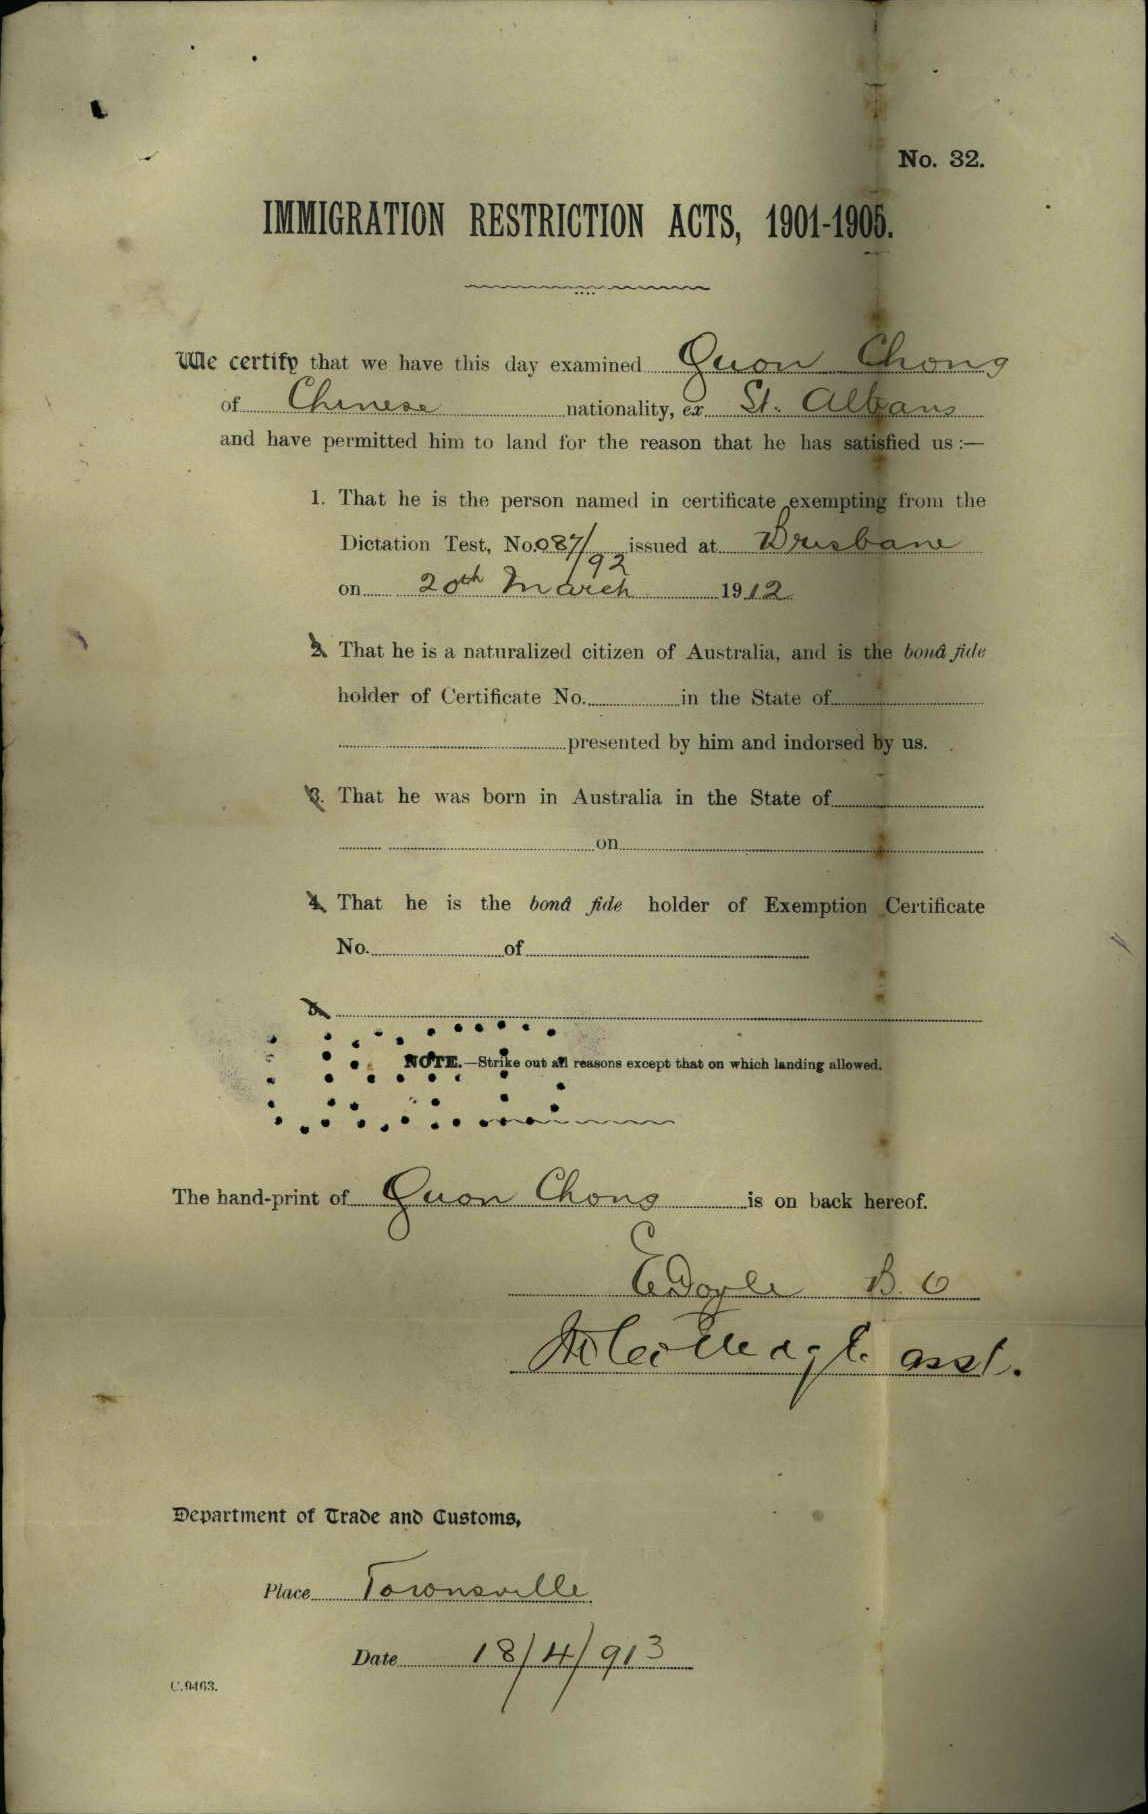 No. 32.
IMMIGRATION RESTRICTION ACTS, 1901-1905.
We certify that we have this day examined Quon Chong
of Chinese nationality, ex St. Albans
and have permitted him to land for the reason that he has satisfied us :—
1. That he is the person named in certificate exempting from the
Dictation Test, No. 087/92 issued at Brisbane
on 20th March 1912
2. That he is a naturalized citizen of Australia, and is the bonâ fide
holder of Certificate No. in the State of
presented by him and indorsed by us.
3. That he was born in Australia in the State of
on
4. That he is the bonâ fide holder of Exemption Certificate
No. of
5.
NOTE.—Strike out all reasons except that on which landing allowed.
The hand-print of Quon Chong is on back hereof.
E Doyle B. O
asst.
Department of Trade and Customs,
Place Townsville
Date 18/4/913
C.9463.